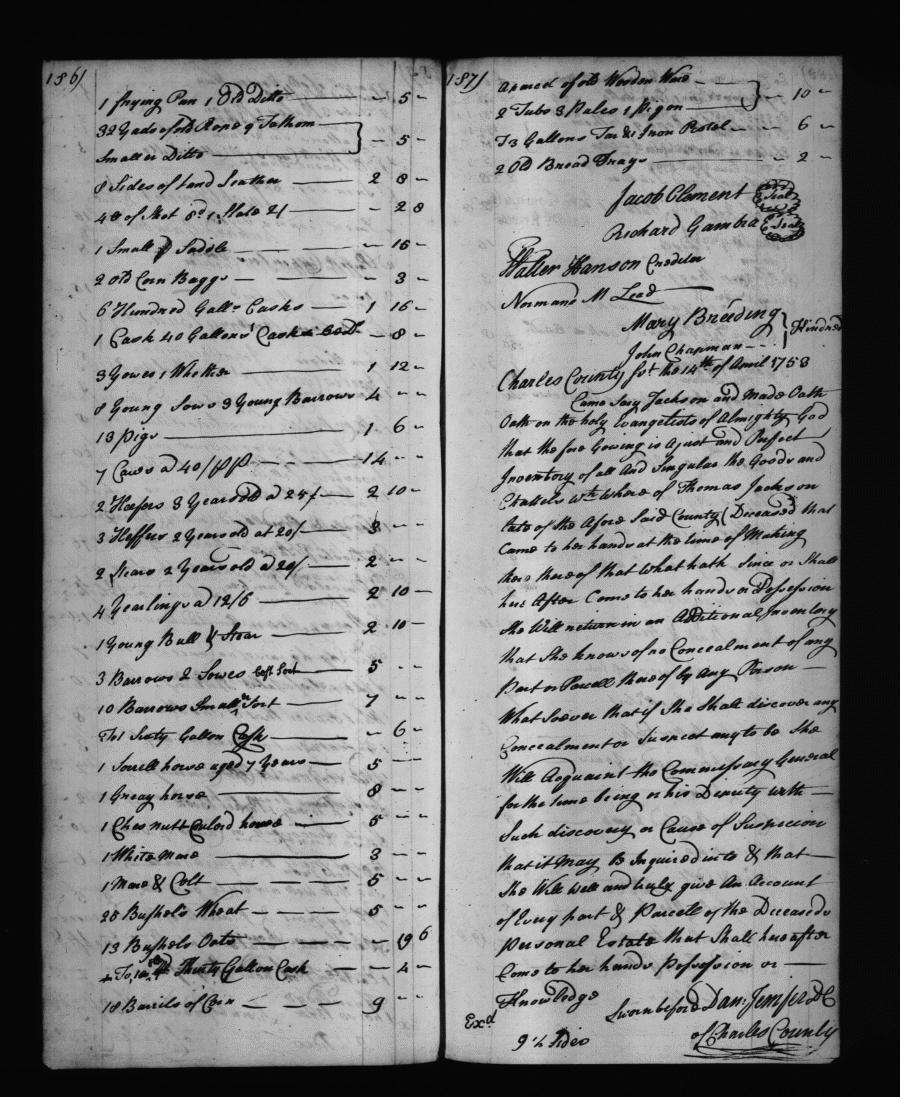 186/
1 frying Pan 1 Old Ditto - 5 -
32 Yads of old Rope 9 Fathom
Smaller Ditto - 5 -
8 Sides of Land Leather 2 8 -
48 of Shot 8d 1 Slate 2/ - 2 8
1 Small Saddle - 15 -
2 old Corn Baggs - 3 -
6 Hundred Gall Casks 1 16 -
1 Cask 40 Gallons - 8 -
3 Yowes 1 Whether 1 12 -
8 Young Sows 3 Young Barrows 4 - -
13 Pigs 1 6 -
7 Cows a 40/ 14 - -
2 Heefers 3 Years old a 25/ 2 10 -
3 Heffers 2 Years old at 20/ 3 - -
2 Stears 2 Years old a 20/ 2 - -
4 Yearlings a 12/6 2 10 -
1 Young Bull & Stear 2 10 -
3 Barrows 2 Sowes best Sort 5 - -
10 Barrows Small Sort 7 - -
To 1 Sixty Gallon Cask - 6 -
1 Sorrell horse aged 7 Years 5 - -
1 Greay horse 8 - -
1 Chesnutt Coulord horse 5 - -
1 White Mare 3 - -
1 Mare & Colt 5 - -
25 Bushels Wheat 5 - -
13 Bushels Oats - 19 6
Thirty Gallon Cask - 4 -
18 Barrels of Corn 9 - -
187/
a parcel of old Wooden Ware
2 Tubs 3 Pales 1 Pigon - 10 -
3 Gallons Tar & 1 Iron Pestel - 6 -
2 Old Bread Trays - 2 -
Jacob Clement Seal
Richard Gambra Seal
Walter Hanson Creditor
Normand McLead
Mary Breeding
John Chapman Kindred
Charles County Sct the 14th of April 1753
Came Jackson and Made Oath
Oath on the holy Evangelists of Almighty God
that the fore Going is a Just and Perfect
Inventory of all And Singular the Goods and
Chattels Where of Thomas Jackson
late of the Afore Said County (Deceased) that
Came to her hands at the time of Making
there thereof that What hath Since or Shall
here After Come to her hands or Possession
She Will return in an Additional Inventory
that She knows of no Concealment of any
Part or Parcell thereof by Any Person
What Soever that if She Shall discover any
Concealment or Suspect any to be She
Will Acquaint the Commissary General
for the time being or his Deputy with
Such discovery or Cause of Suspicion
that it May B Inquired into & that
She Will Well and truly give An Account
of Every part & Parcell of the Deceaseds
Personal Estate that Shall hereafter
Come to her hands Possession or
Knowledge
Sworn before Dan. Jenifer DC
of Charles County
Exd
9 1/2 Sides